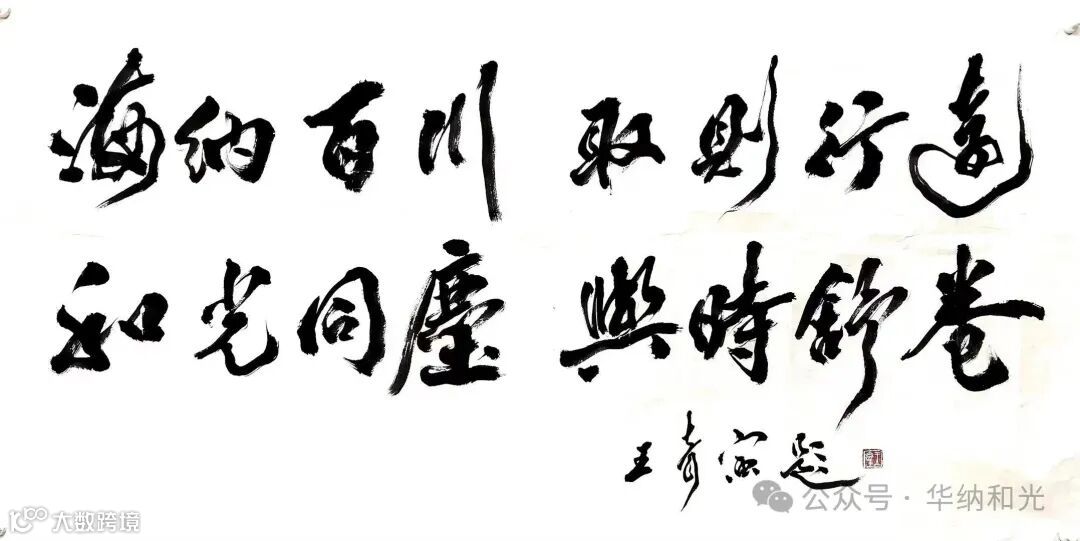 海納百川 取則行遠
和光同塵 與時舒卷
王奇寅題
公众号·华纳和光
大数跨境